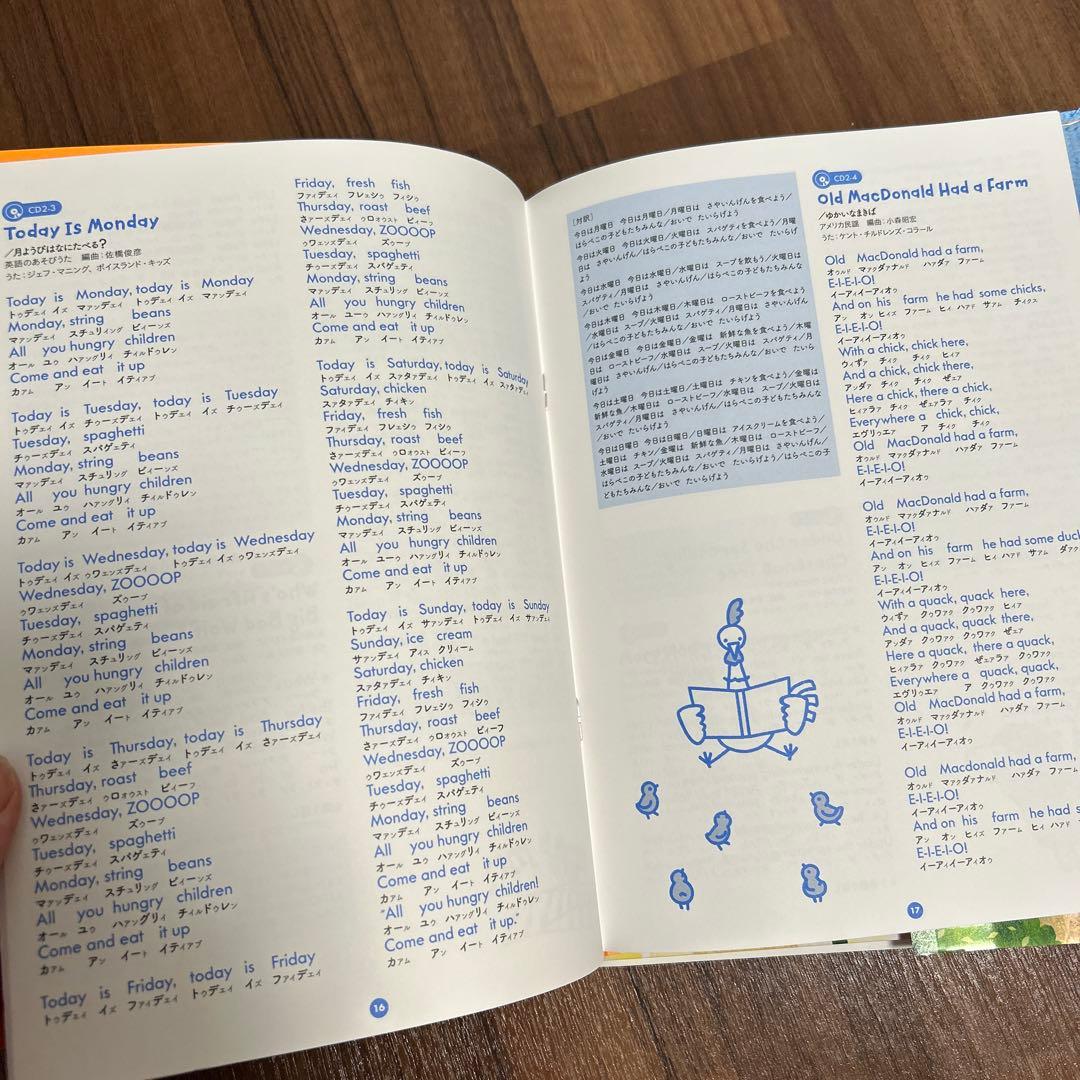 CD2-3
Today Is Monday
／月ようびはなにたべる？
英語のあそびうた　編曲：佐橋俊彦
うた：ジェフ・マニング、ボイスランド・キッズ
Today is Monday, today is Monday
トゥデェィ イズ マァンデェィ トゥデェィ イズ マァンデェィ
Monday, string beans
マァンデェィ スチュリィング ビィーンズ
All you hungry children
オール ユゥ ハァングリィ チィルドゥレン
Come and eat it up
カァム アン イート イティアプ
Today is Tuesday, today is Tuesday
トゥデェィ イズ チゥーズデェィ トゥデェィ イズ チゥーズデェィ
Tuesday, spaghetti
チゥーズデェィ スパゲェティ
Monday, string beans
マァンデェィ スチュリング ビィーンズ
All you hungry children
オール ユゥ ハァングリィ チィルドゥレン
Come and eat it up
カァム アン イート イティアプ
Today is Wednesday, today is Wednesday
トゥデェィ イズ ゥワェンズデェィ トゥデェィ イズ ゥワェンズデェィ
Wednesday, ZOOOOP
ゥワェンズデェィ ズゥープ
Tuesday, spaghetti
チゥーズデェィ スパゲェティ
Monday, string beans
マァンデェィ スチュリング ビィーンズ
All you hungry children
オール ユゥ ハァングリィ チィルドゥレン
Come and eat it up
カァム アン イート イティアプ
Today is Thursday, today is Thursday
トゥデェィ イズ さァーズデェィ トゥデェィ イズ さァーズデェィ
Thursday, roast beef
さァーズデェィ ゥロォゥスト ビィーフ
Wednesday, ZOOOOP
ゥワェンズデェィ ズゥープ
Tuesday, spaghetti
チゥーズデェィ スパゲェティ
Monday, string beans
マァンデェィ スチュリング ビィーンズ
All you hungry children
オール ユゥ ハァングリィ チィルドゥレン
Come and eat it up
カァム アン イート イティアプ
Today is Friday, today is Friday
トゥデェィ イズ ファィデェィ トゥデェィ イズ ファィデェィ
Friday, fresh fish
ファィデェィ フレェシゥ フィシゥ
Thursday, roast beef
さァーズデェィ ゥロォゥスト ビィーフ
Wednesday, ZOOOOP
ゥワェンズデェィ ズゥープ
Tuesday, spaghetti
チゥーズデェィ スパゲェティ
Monday, string beans
マァンデェィ スチュリング ビィーンズ
All you hungry children
オール ユーゥ ハァングリィ チィルドゥレン
Come and eat it up
カァム アン イート イティアプ
Today is Saturday, today is Saturday
トゥデェィ イズ スァタァデェィ トゥデェィ イズ スァタァデェィ
Saturday, chicken
スァタァデェィ チィキン
Friday, fresh fish
ファィデェィ フレェシゥ フィシゥ
Thursday, roast beef
さァーズデェィ ゥロォゥスト ビィーフ
Wednesday, ZOOOOP
ゥワェンズデェィ ズゥープ
Tuesday, spaghetti
チゥーズデェィ スパゲェティ
Monday, string beans
マァンデェィ スチュリング ビィーンズ
All you hungry children
オール ユーゥ ハァングリィ チィルドゥレン
Come and eat it up
カァム アン イート イティアプ
Today is Sunday, today is Sunday
トゥデェィ イズ サァンデェィ トゥデェィ イズ サァンデェィ
Sunday, ice cream
サァンデェィ アイス クリィーム
Saturday, chicken
スァタァデェィ チィキン
Friday, fresh fish
ファィデェィ フレェシゥ フィシゥ
Thursday, roast beef
さァーズデェィ ゥロォゥスト ビィーフ
Wednesday, ZOOOOP
ゥワェンズデェィ ズゥープ
Tuesday, spaghetti
チゥーズデェィ スパゲェティ
Monday, string beans
マァンデェィ スチュリング ビィーンズ
All you hungry children
オール ユゥ ハァングリィ チィルドゥレン
Come and eat it up
カァム アン イート イティアプ
"All you hungry children!
オール ユゥ ハァングリィ チィルドゥレン
Come and eat it up."
カァム アン イート イティアプ
16
［対訳］
今日は月曜日　今日は月曜日／月曜日は　さやいんげんを食べよう／
はらぺこの子どもたちみんな／おいで　たいらげよう
今日は火曜日　今日は火曜日／火曜日は　スパゲティを食べよう／月曜
日は　さやいんげん／はらぺこの子どもたちみんな／おいで　たいらげ
よう
今日は水曜日　今日は水曜日／水曜日は　スープを飲もう／火曜日は
スパゲティ／月曜日は　さやいんげん／はらぺこの子どもたちみんな
／おいで　たいらげよう
今日は木曜日　今日は木曜日／木曜日は　ローストビーフを食べよう
／水曜日は　スープ／火曜日は　スパゲティ／月曜日は　さやいんげん
／はらぺこの子どもたちみんな／おいで　たいらげよう
今日は金曜日　今日は金曜日／金曜は　新鮮な魚を食べよう／木曜
日は　ローストビーフ／水曜日は　スープ／火曜日は　スパゲティ／月
曜日は　さやいんげん／はらぺこの子どもたちみんな／おいで　たいら
げよう
今日は土曜日　今日は土曜日／土曜日は　チキンを食べよう／金曜は
新鮮な魚／木曜日は　ローストビーフ／水曜日は　スープ／火曜日は
スパゲティ／月曜日は　さやいんげん／はらぺこの子どもたちみんな
／おいで　たいらげよう
今日は日曜日　今日は日曜日／日曜日は　アイスクリームを食べよう／
土曜日は　チキン／金曜は　新鮮な魚／木曜日は　ローストビーフ／
水曜日は　スープ／火曜日は　スパゲティ／月曜日は　さやいんげん／
はらぺこの子どもたちみんな／おいで　たいらげよう／はらぺこの子
どもたちみんな／おいで　たいらげよう
CD2-4
Old MacDonald Had a Farm
／ゆかいなまきば
アメリカ民謡　編曲：小森昭宏
うた：ケント・チルドレンズ・コラール
Old MacDonald had a farm,
オゥルド マァクダァナルド ハァダァ ファーム
E-I-E-I-O!
イーアィイーアィオゥ
And on his farm he had some chicks,
アン オン ヒィズ ファーム ヒィ ハァド サァム チィクス
E-I-E-I-O!
イーアィイーアィオゥ
With a chick, chick here,
ウィずァ チィク チィク ヒィァ
And a chick, chick there,
アンダァ チィク チィク ぜェァ
Here a chick, there a chick,
ヒィァラァ チィク ぜェァラァ チィク
Everywhere a chick, chick,
エヴリゥエァ ア チィク チィク
Old MacDonald had a farm,
オゥルド マァクダァナルド ハァダァ ファーム
E-I-E-I-O!
イーアィイーアィオゥ
Old MacDonald had a farm,
オゥルド マァクダァナルド ハァダァ ファーム
E-I-E-I-O!
イーアィイーアィオゥ
And on his farm he had some duck
アン オン ヒィズ ファーム ヒィ ハァド サァム ダァク
E-I-E-I-O!
イーアィイーアィオゥ
With a quack, quack here,
ウィずァ クゥワァク クゥワァク ヒィァ
And a quack, quack there,
アンダァ クゥワァク クゥワァク ぜェァ
Here a quack, there a quack,
ヒィァラァ クゥワァク ぜェァラァ クゥワァク
Everywhere a quack, quack,
エヴリゥエァ ア クゥワァク クゥワァク
Old MacDonald had a farm,
オゥルド マァクダァナルド ハァダァ ファーム
E-I-E-I-O!
イーアィイーアィオゥ
Old Macdonald had a farm,
オゥルド マァクダァナルド ハァダァ ファーム
E-I-E-I-O!
イーアィイーアィオゥ
And on his farm he had s
アン オン ヒィズ ファーム ヒィ ハァド
E-I-E-I-O!
イーアィイーアィオゥ
17